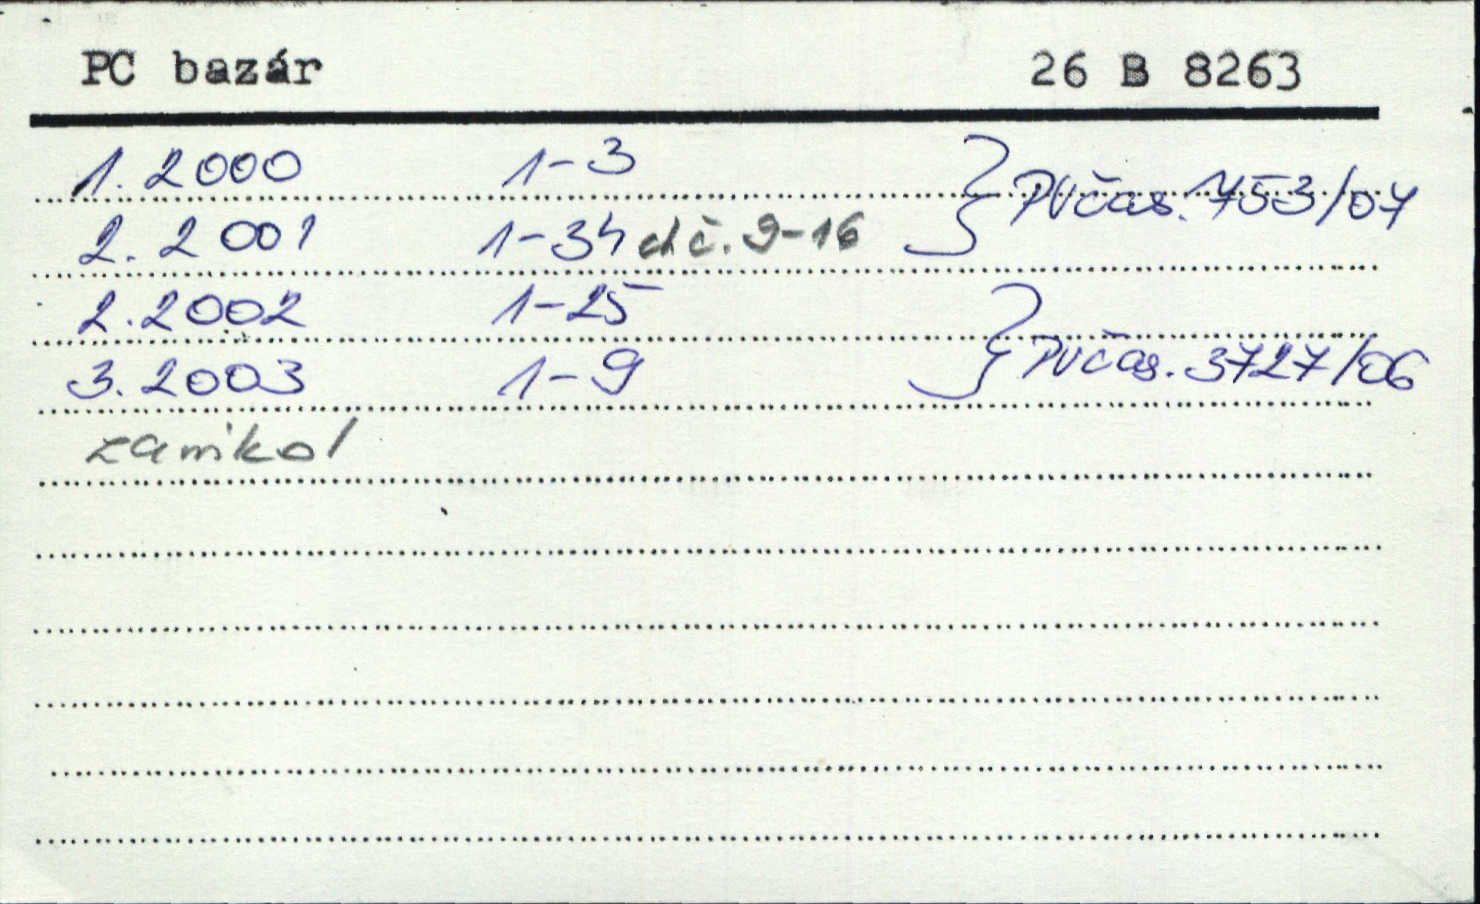 PC bazár 26 B 8263
1. 2000 1-3
2. 2001 1-34 ch č. 9-16 } PVčas. 1753/07
2. 2002 1-25
3. 2003 1-9 } PVčas. 3727/06
zanikol